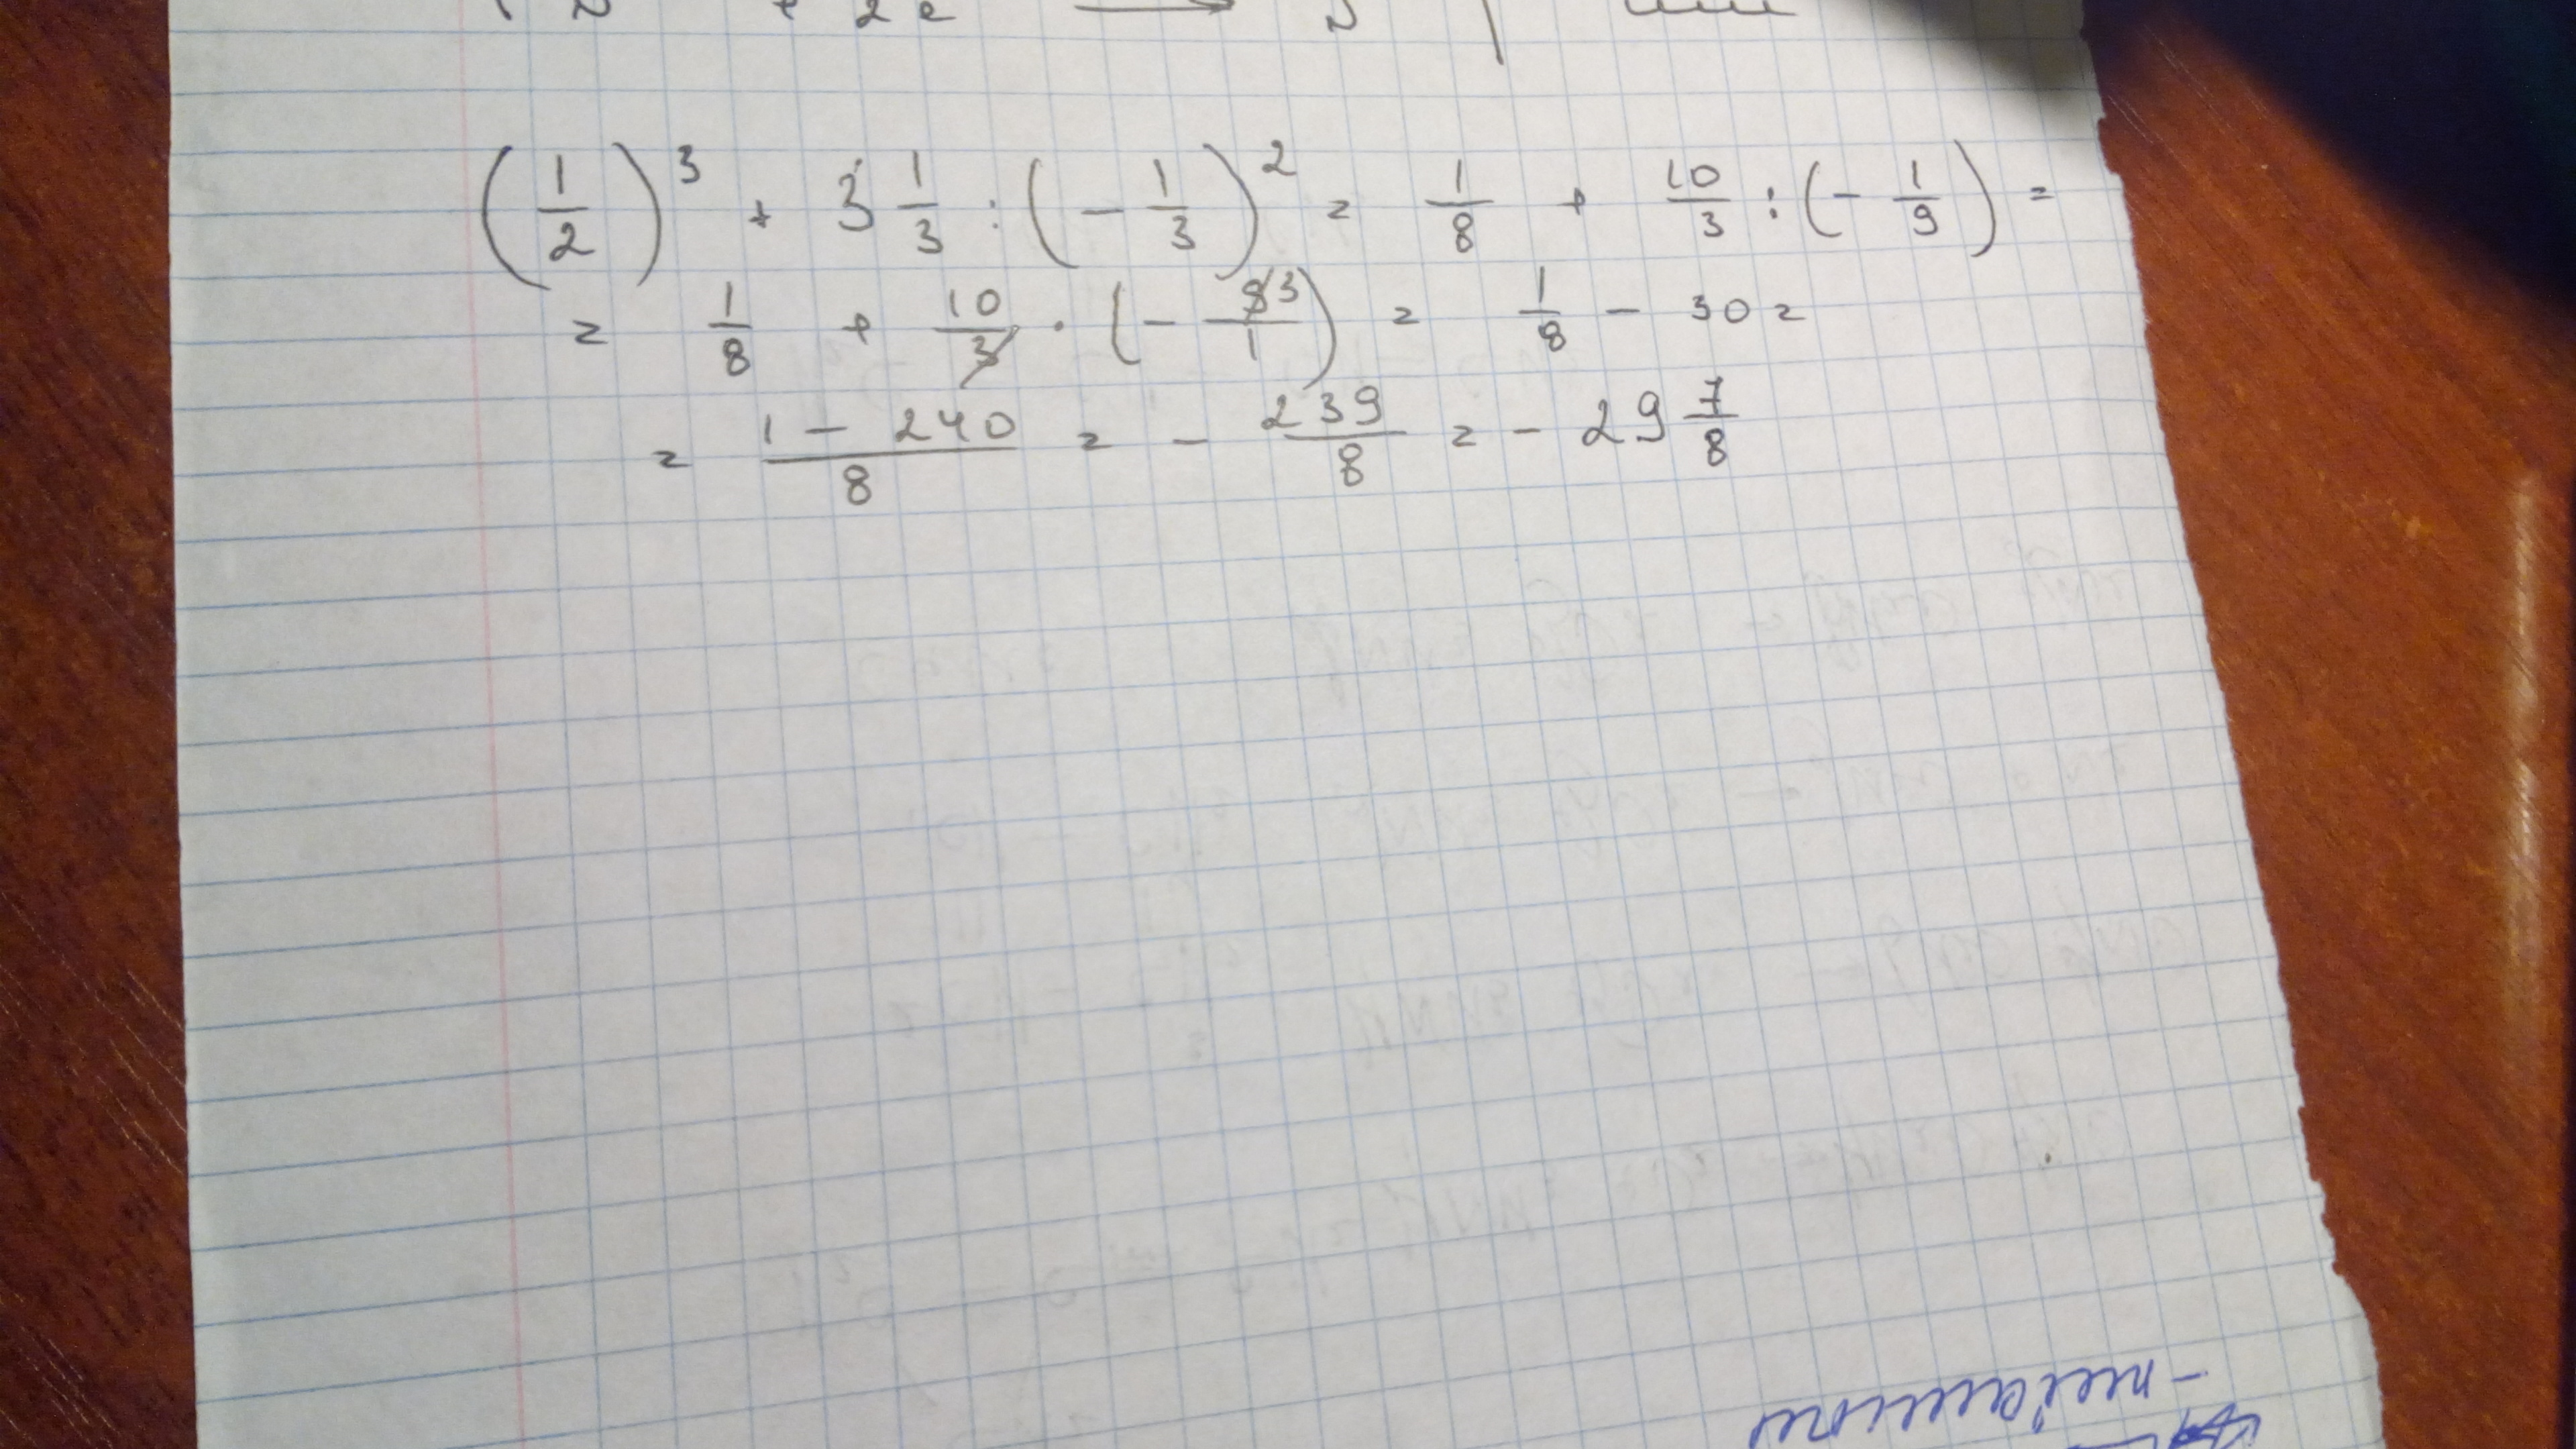 + 2e
(1/2)³ + 3 1/3 : (- 1/3)² = 1/8 + 10/3 : (- 1/9) =
= 1/8 + 10/3 · (- 9 3/1) = 1/8 - 30 =
= 1 - 240/8 = - 239/8 = - 29 7/8